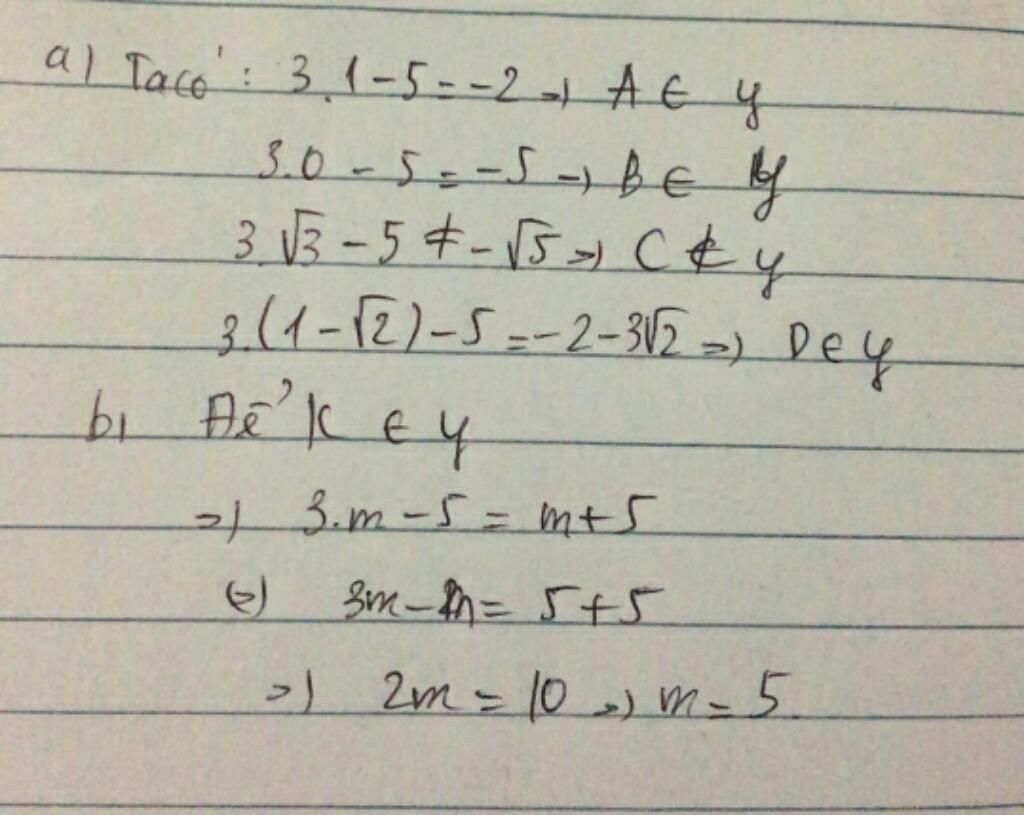 a) Ta có: 3.1-5=-2 => A ∈ y
3.0-5=-5 => B ∈ y
3.√3-5≠-√5 => C ∉ y
3.(1-√2)-5=-2-3√2 => D ∈ y
b) Để K ∈ y
=> 3.m-5=m+5
(=) 3m-m=5+5
=> 2m=10 => m=5